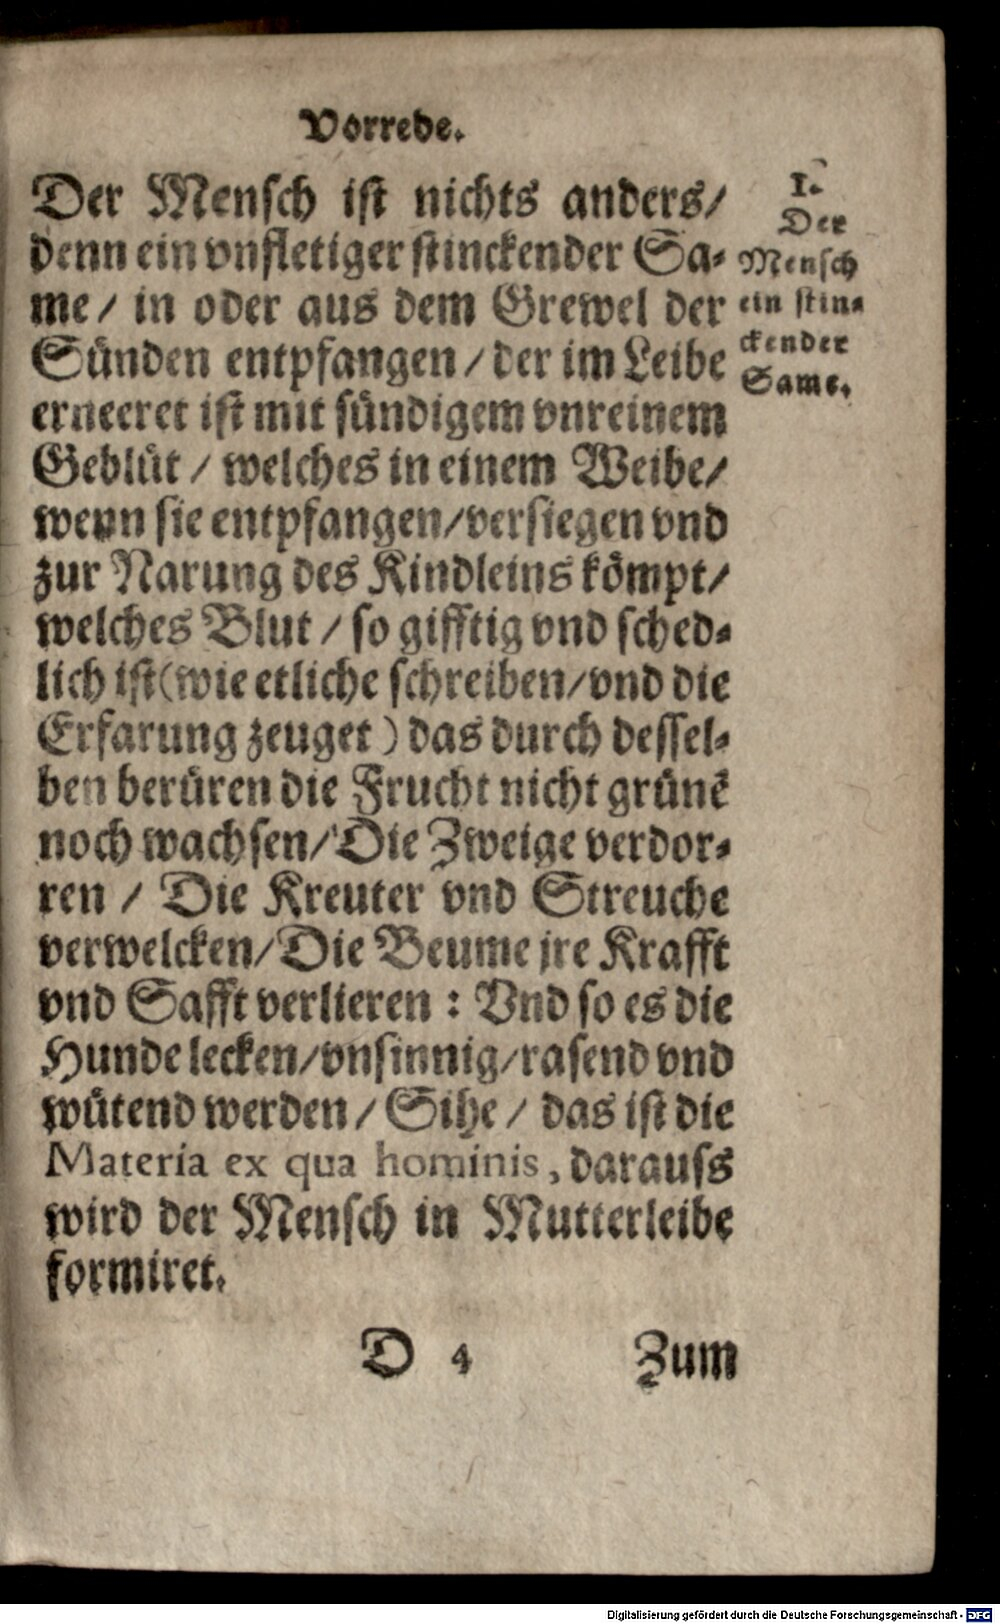 Vorrede.
Der Mensch ist nichts anders/
denn ein vnfletiger stinckender Sa-
me / in oder aus dem Grewel der
Sünden entpfangen / der im Leibe
erneeret ist mit sündigem vnreinem
Geblüt / welches in einem Weibe/
wenn sie entpfangen/versiegen vnd
zur Narung des Kindleins kömpt/
welches Blut / so gifftig vnd sched-
lich ist (wie etliche schreiben/vnd die
Erfarung zeuget) das durch dessel-
ben berüren die Frucht nicht grünē
noch wachsen/Die Zweige verdor-
ren / Die Kreuter vnd Streuche
verwelcken/Die Beume jre Krafft
vnd Safft verlieren : Vnd so es die
Hunde lecken/vnsinnig/rasend vnd
wütend werden / Sihe / das ist die
Materia ex qua hominis, darauss
wird der Mensch in Mutterleibe
formiret.
1.
Der
Mensch
ein stin-
ckender
Same.
D 4 Zum
Digitalisierung gefördert durch die Deutsche Forschungsgemeinschaft - DFG